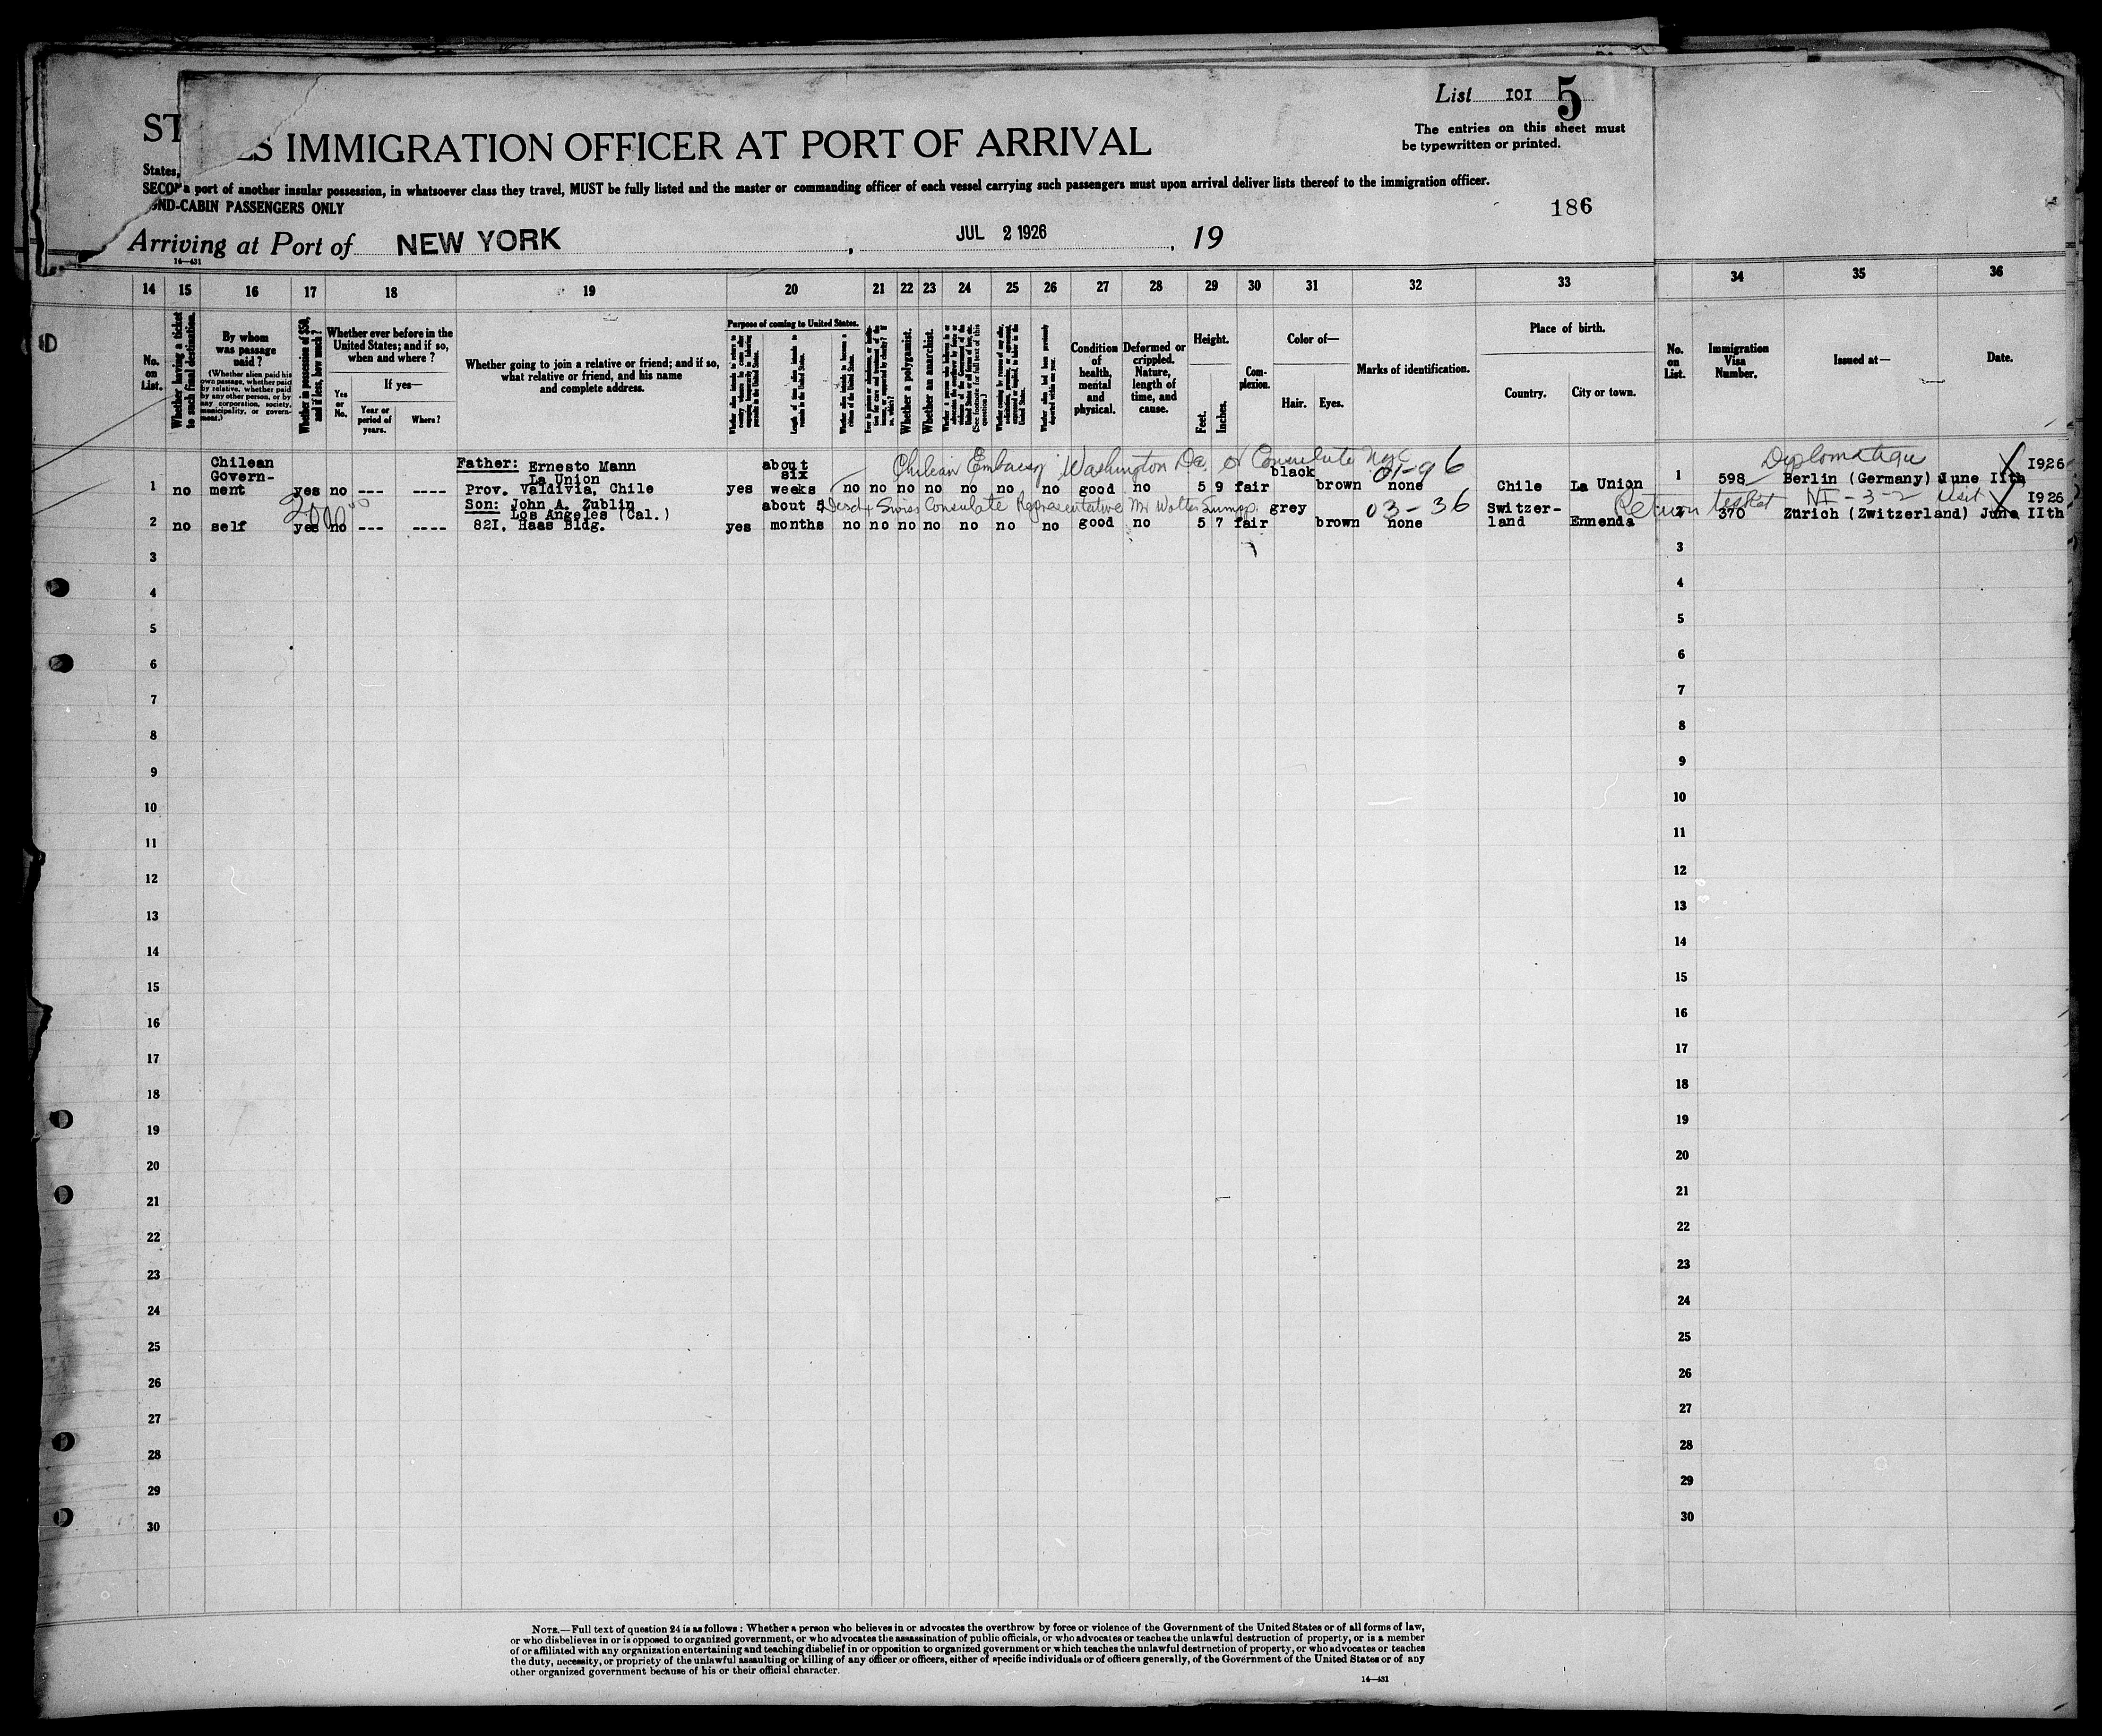 List IOI 5
The entries on this sheet must
be typewritten or printed.
ST ES IMMIGRATION OFFICER AT PORT OF ARRIVAL
States,
a port of another insular possession, in whatsoever class they travel, MUST be fully listed and the master or commanding officer of each vessel carrying such passengers must upon arrival deliver lists thereof to the immigration officer.
OND-CABIN PASSENGERS ONLY
186
Arriving at Port of NEW YORK, JUL 2 1926, 19
14—431
14 15 16 17 18 19 20 21 22 23 24 25 26 27 28 29 30 31 32 33 34 35 36
No. on List.
Whether having a ticket to such final destination.
By whom was passage paid?
(Whether alien paid his own passage, whether paid by relative, whether paid by any other person, or by any corporation, society, municipality, or government.)
Whether in possession of $50, and if less, how much?
Whether ever before in the United States; and if so, when and where?
Yes or No.
If yes—
Year or period of years.
Where?
Whether going to join a relative or friend; and if so, what relative or friend, and his name and complete address.
Purpose of coming to United States.
Length of time alien intends to remain in the United States.
Whether a polygamist.
Whether an anarchist.
Condition of health, mental and physical.
Deformed or crippled. Nature, length of time, and cause.
Height.
Feet.
Inches.
Complexion.
Color of—
Hair.
Eyes.
Marks of identification.
Place of birth.
Country.
City or town.
No. on List.
Immigration Visa Number.
Issued at—
Date.
Chilean Embassy Washington Dc. or Consulate NYC
01-96
Diplomatique
1 no Chilean Govern-ment yes no --- ---- Father: Ernesto Mann La Union Prov. Valdivia, Chile yes about six weeks no no no no no no no good no 5 9 fair black brown none Chile La Union 1 598 Berlin (Germany) June IIth 1926
3000 00
Swiss Consulate Representative Mr Walter
03-36
Return ticket NI-3-2 visit
2 no self yes no --- ---- Son: John A. Zublin Los Angeles (Cal.) 82I, Haas Bldg. yes about 5 months no no no no no no no good no 5 7 fair grey brown none Switzer-land Ennenda 370 Zürich (Zwitzerland) June IIth 1926
3 3
4 4
5 5
6 6
7 7
8 8
9 9
10 10
11 11
12 12
13 13
14 14
15 15
16 16
17 17
18 18
19 19
20 20
21 21
22 22
23 23
24 24
25 25
26 26
27 27
28 28
29 29
30 30
NOTE.—Full text of question 24 is as follows: Whether a person who believes in or advocates the overthrow by force or violence of the Government of the United States or of all forms of law,
or who disbelieves in or is opposed to organized government, or who advocates the assassination of public officials, or who advocates or teaches the unlawful destruction of property, or is a member
of or affiliated with any organization entertaining and teaching disbelief in or opposition to organized government or which teaches the unlawful destruction of property, or who advocates or teaches
the duty, necessity, or propriety of the unlawful assaulting or killing of any officer or officers, either of specific individuals or of officers generally, of the Government of the United States or of any
other organized government because of his or their official character.
14—431